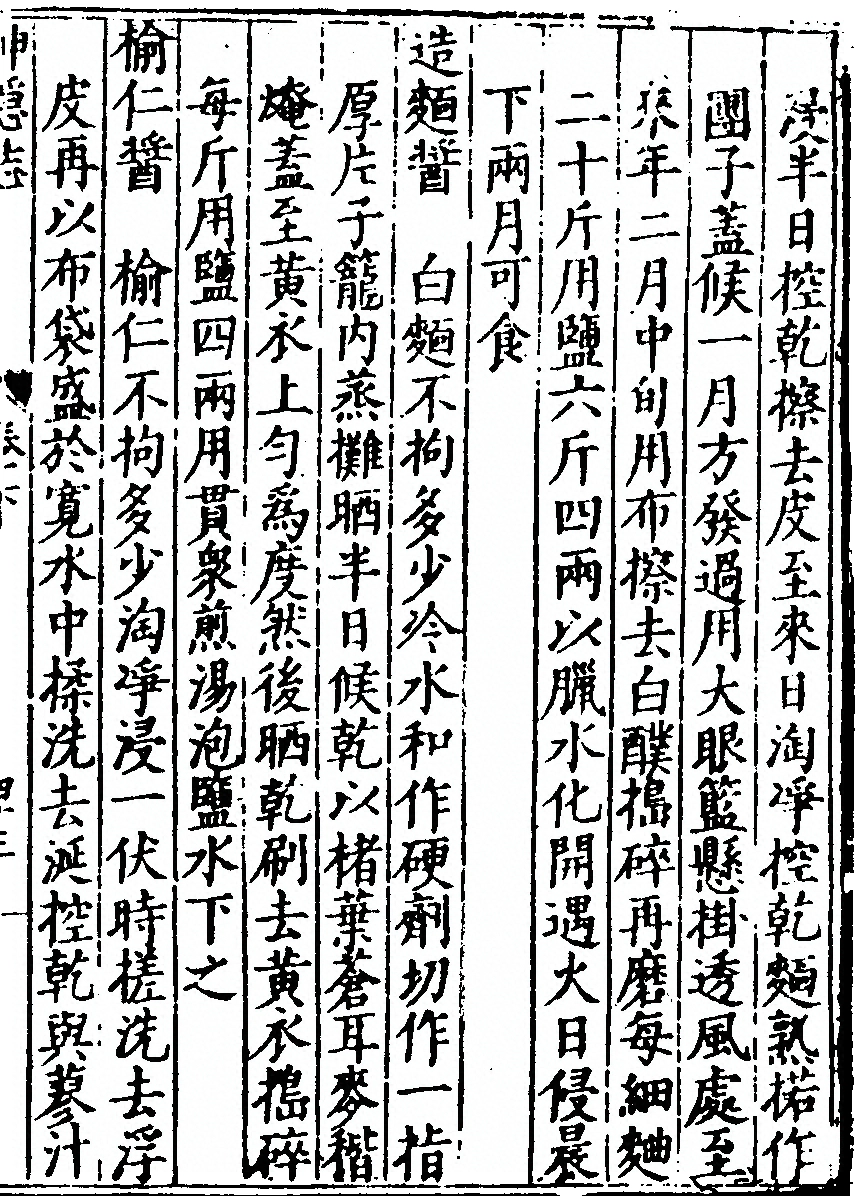 浸半日控乾擦去皮至來日淘淨控乾麵熟掿作
團子蓋候一月方發過用大眼籃懸掛透風處至
來年二月中旬用布擦去白醭搗碎再磨每細麯
二十斤用鹽六斤四兩以臘水化開遇火日侵晨
下兩月可食
造麵醬　白麵不拘多少冷水和作硬劑切作一指
厚片子籠內蒸攤晒半日候乾以楮葉蒼耳麥䅖
蓋至黃衣上勻爲度然後晒乾刷去黃衣搗碎
每斤用鹽四兩用貫衆煎湯泡鹽水下之
榆仁醬　榆仁不拘多少淘淨浸一伏時搓洗去浮
皮再以布袋盛於寬水中揉洗去涎控乾與蓼汁
神隱志